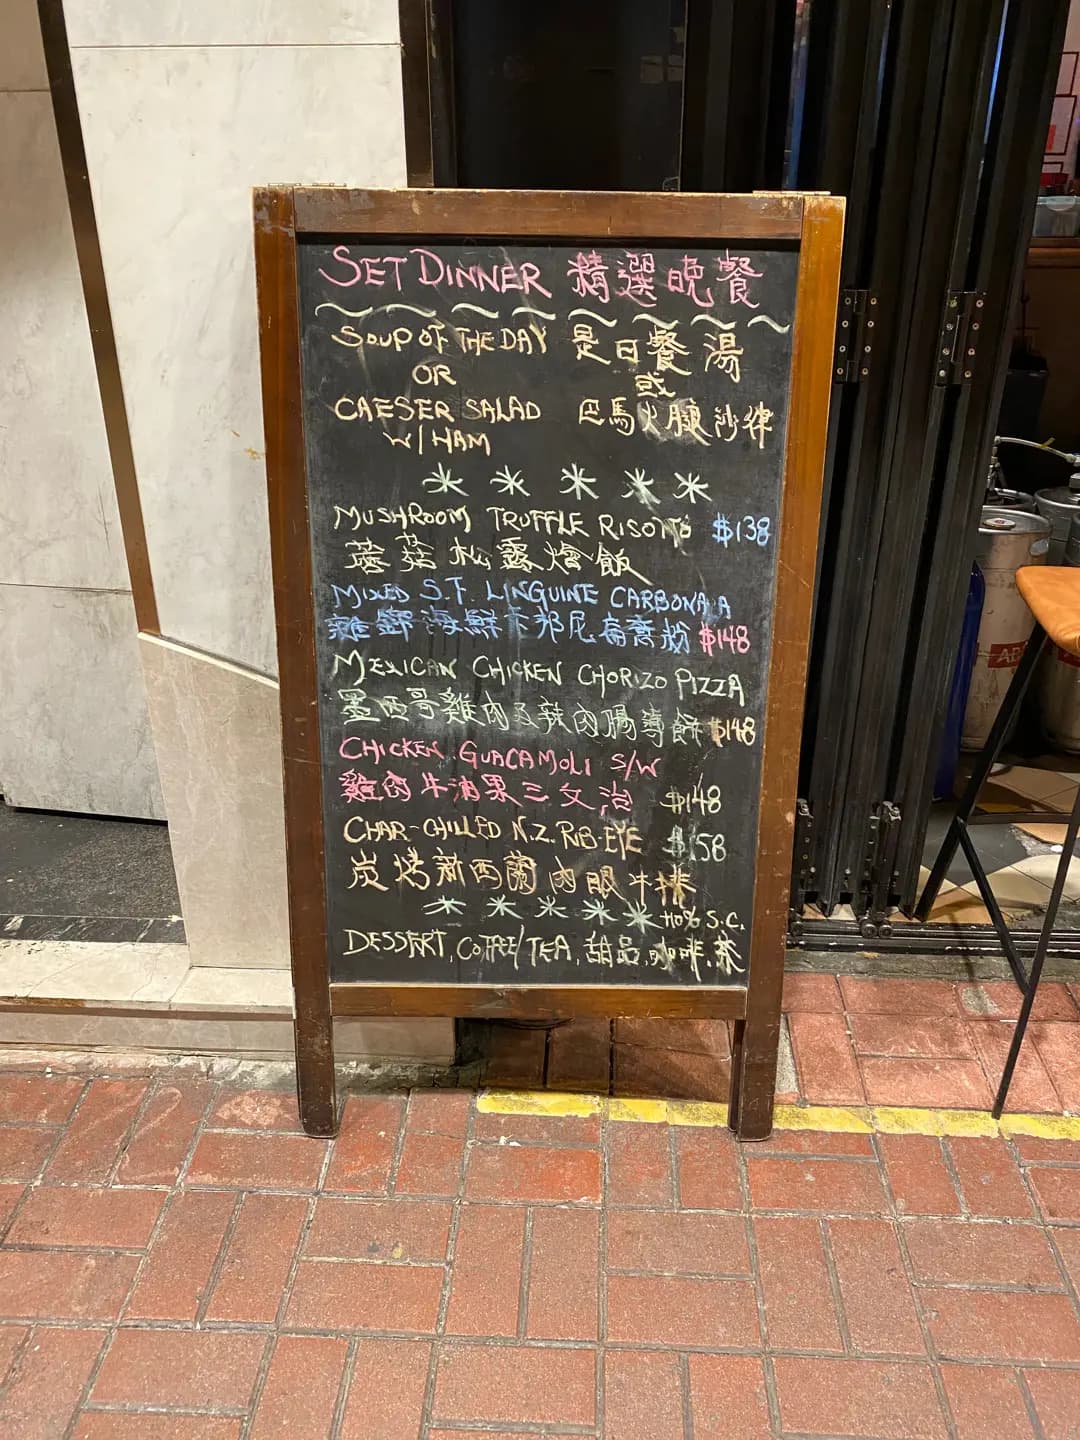 SET DINNER 精選晚餐
SOUP OF THE DAY 是日餐湯
OR 或
CAESER SALAD 巴馬火腿沙律
W/ HAM
MUSHROOM TRUFFLE RISOTTO $138
蘑菇松露燴飯
MIXED S.F. LINGUINE CARBONA A
海鮮卡邦尼扁意粉 $148
MEXICAN CHICKEN CHORIZO PIZZA
墨西哥雞肉及辣肉腸薄餅 $148
CHICKEN GUACAMOLI S/W
雞肉牛油果三文治 $148
CHAR-CHILLED N.Z. RIB-EYE $158
炭烤新西蘭肉眼牛排
+10% S.C.
DESSERT, COFFEE/TEA, 甜品,咖啡,茶